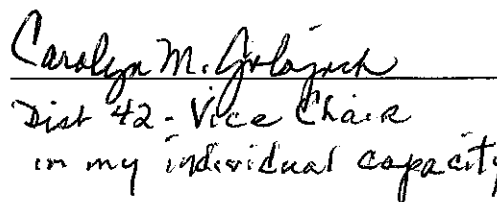 Carolyn M. Golojuch
Dist 42 - Vice Chair
in my individual capacity